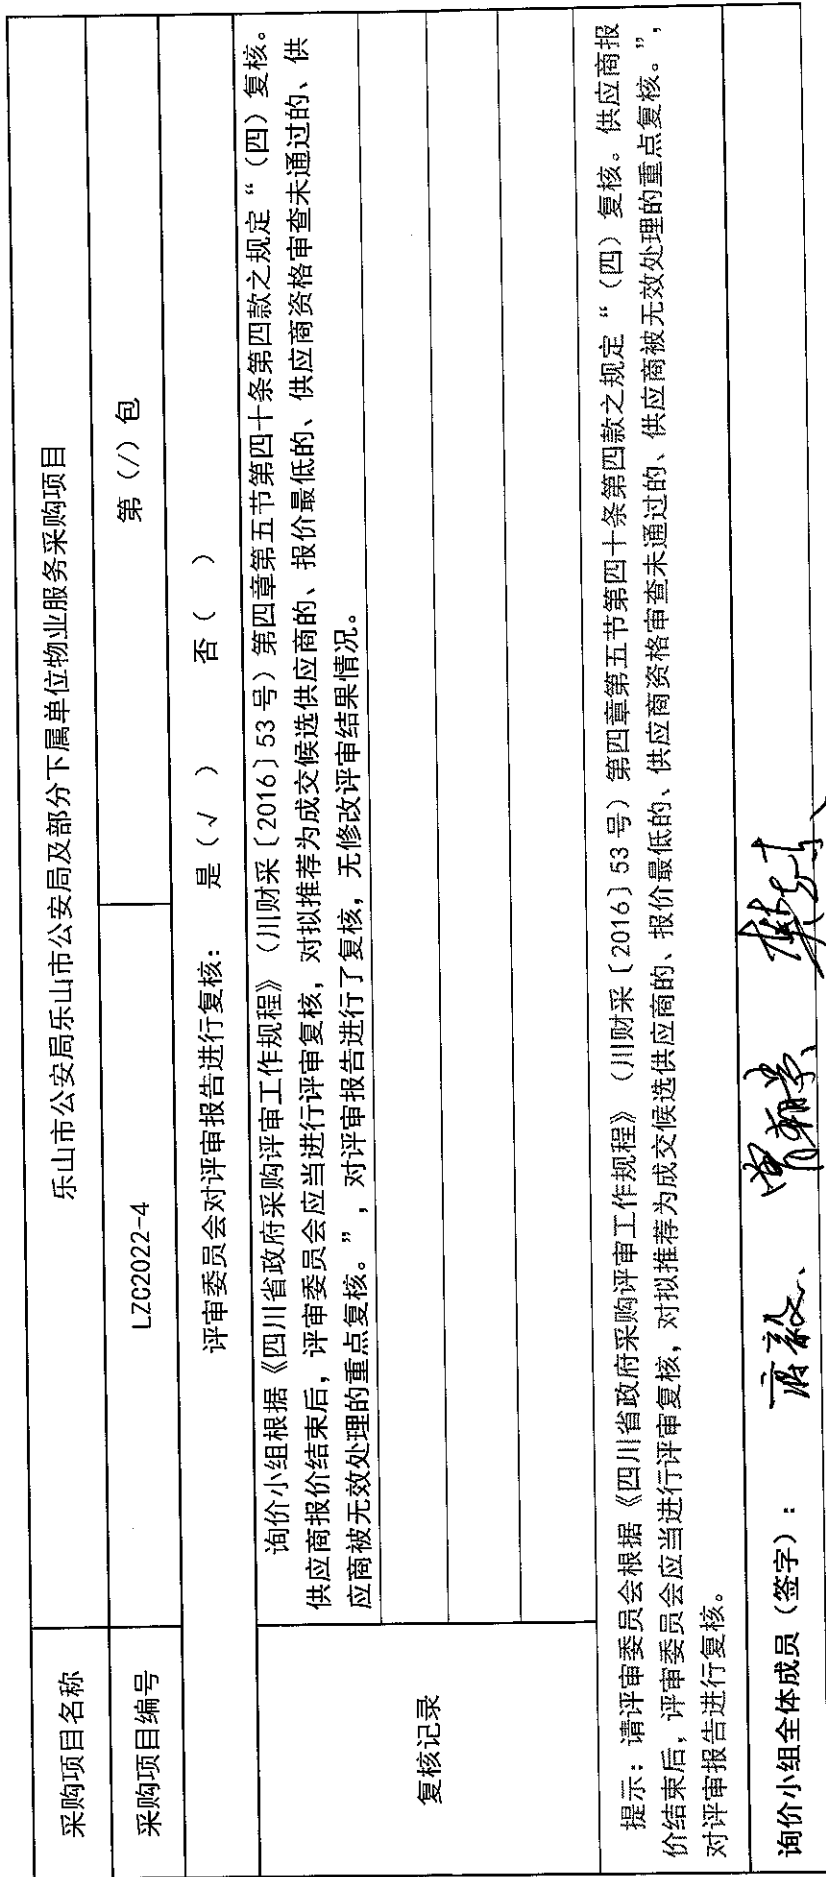 采购项目名称 乐山市公安局乐山市公安局及部分下属单位物业服务采购项目
采购项目编号 LZC2022-4 第（/）包
评审委员会对评审报告进行复核： 是（√ ） 否（ ）
复核记录
询价小组根据《四川省政府采购评审工作规程》（川财采〔2016〕53号）第四章第五节第四十条第四款之规定“（四）复核。
供应商报价结束后，评审委员会应当进行评审复核，对拟推荐为成交候选供应商的、报价最低的、供应商资格审查未通过的、供
应商被无效处理的重点复核。”，对评审报告进行了复核，无修改评审结果情况。
提示：请评审委员会根据《四川省政府采购评审工作规程》（川财采〔2016〕53号）第四章第五节第四十条第四款之规定“（四）复核。供应商报
价结束后，评审委员会应当进行评审复核，对拟推荐为成交候选供应商的、报价最低的、供应商资格审查未通过的、供应商被无效处理的重点复核。”，
对评审报告进行复核。
询价小组全体成员（签字）：